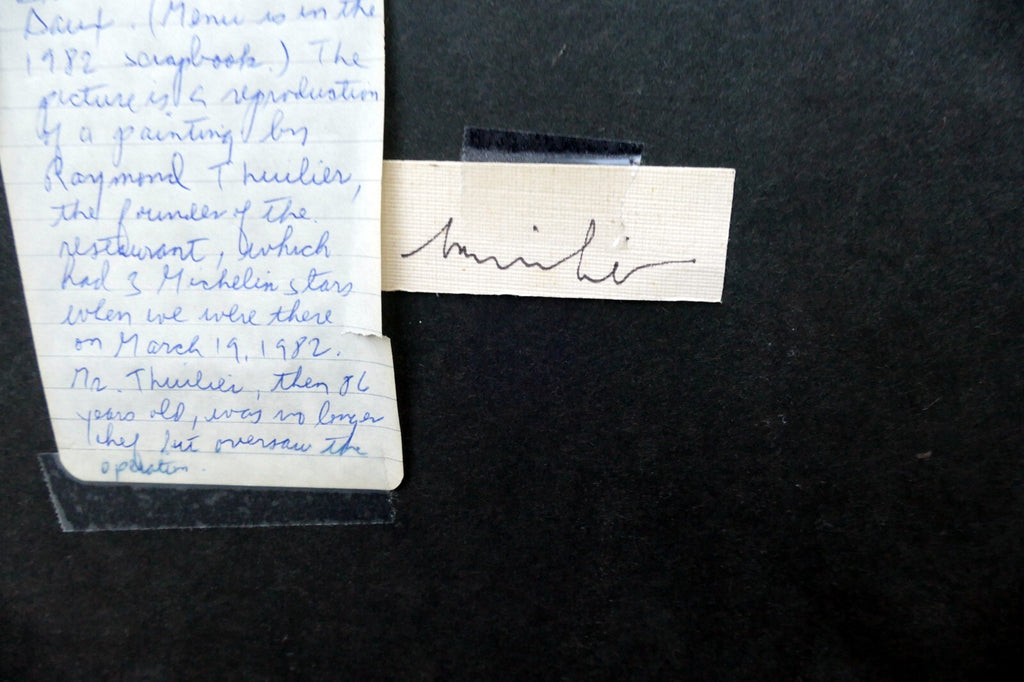 Baux. (Menu is in the
1982 scrapbook.) The
picture is a reproduction
of a painting by
Raymond Thuilier,
the founder of the
restaurant, which
had 3 Michelin stars
when we were there
on March 19, 1982.
Mr. Thuilier, then 86
years old, was no longer
chef but oversaw the
operation.
Thuilier